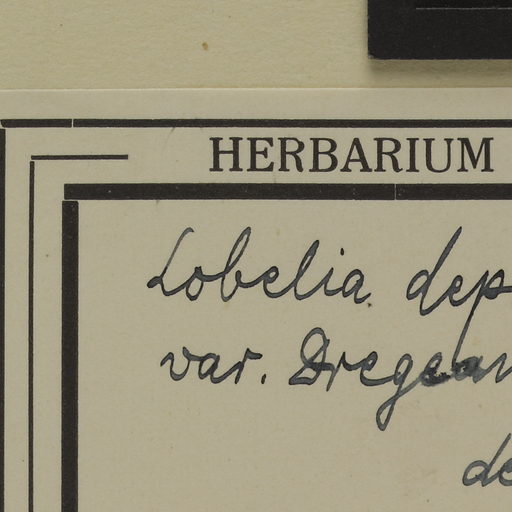 HERBARIUM
Lobelia dep
var. Dregean
de